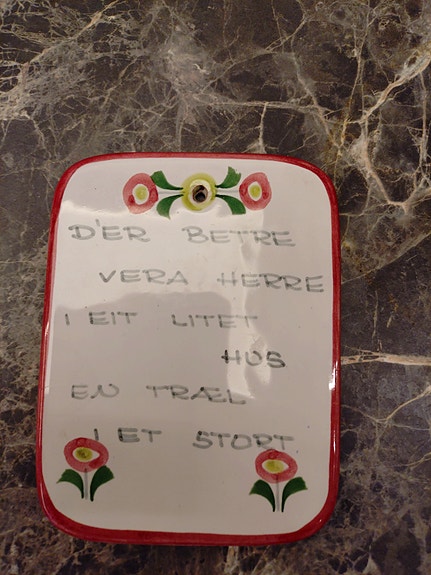 D'ER BETRE
VERA HERRE
I EIT LITET
HUS
EN TRÆL
I ET STORT